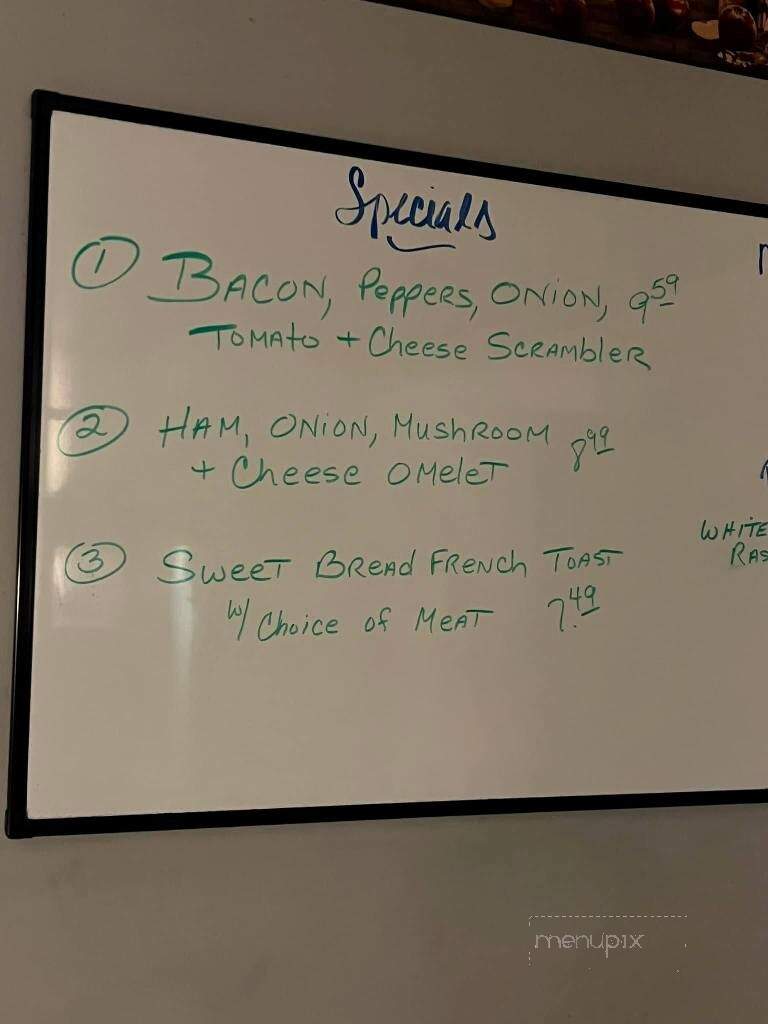 Specials
① BACON, PEPPERS, ONION, 9.59
TOMATO + Cheese SCRAMBLER
② HAM, ONION, MUSHROOM 8.99
+ Cheese OMELET
③ SWEET BREAD FRENCH TOAST
w/ Choice of MEAT 7.49
WHITE
RAS
menupix